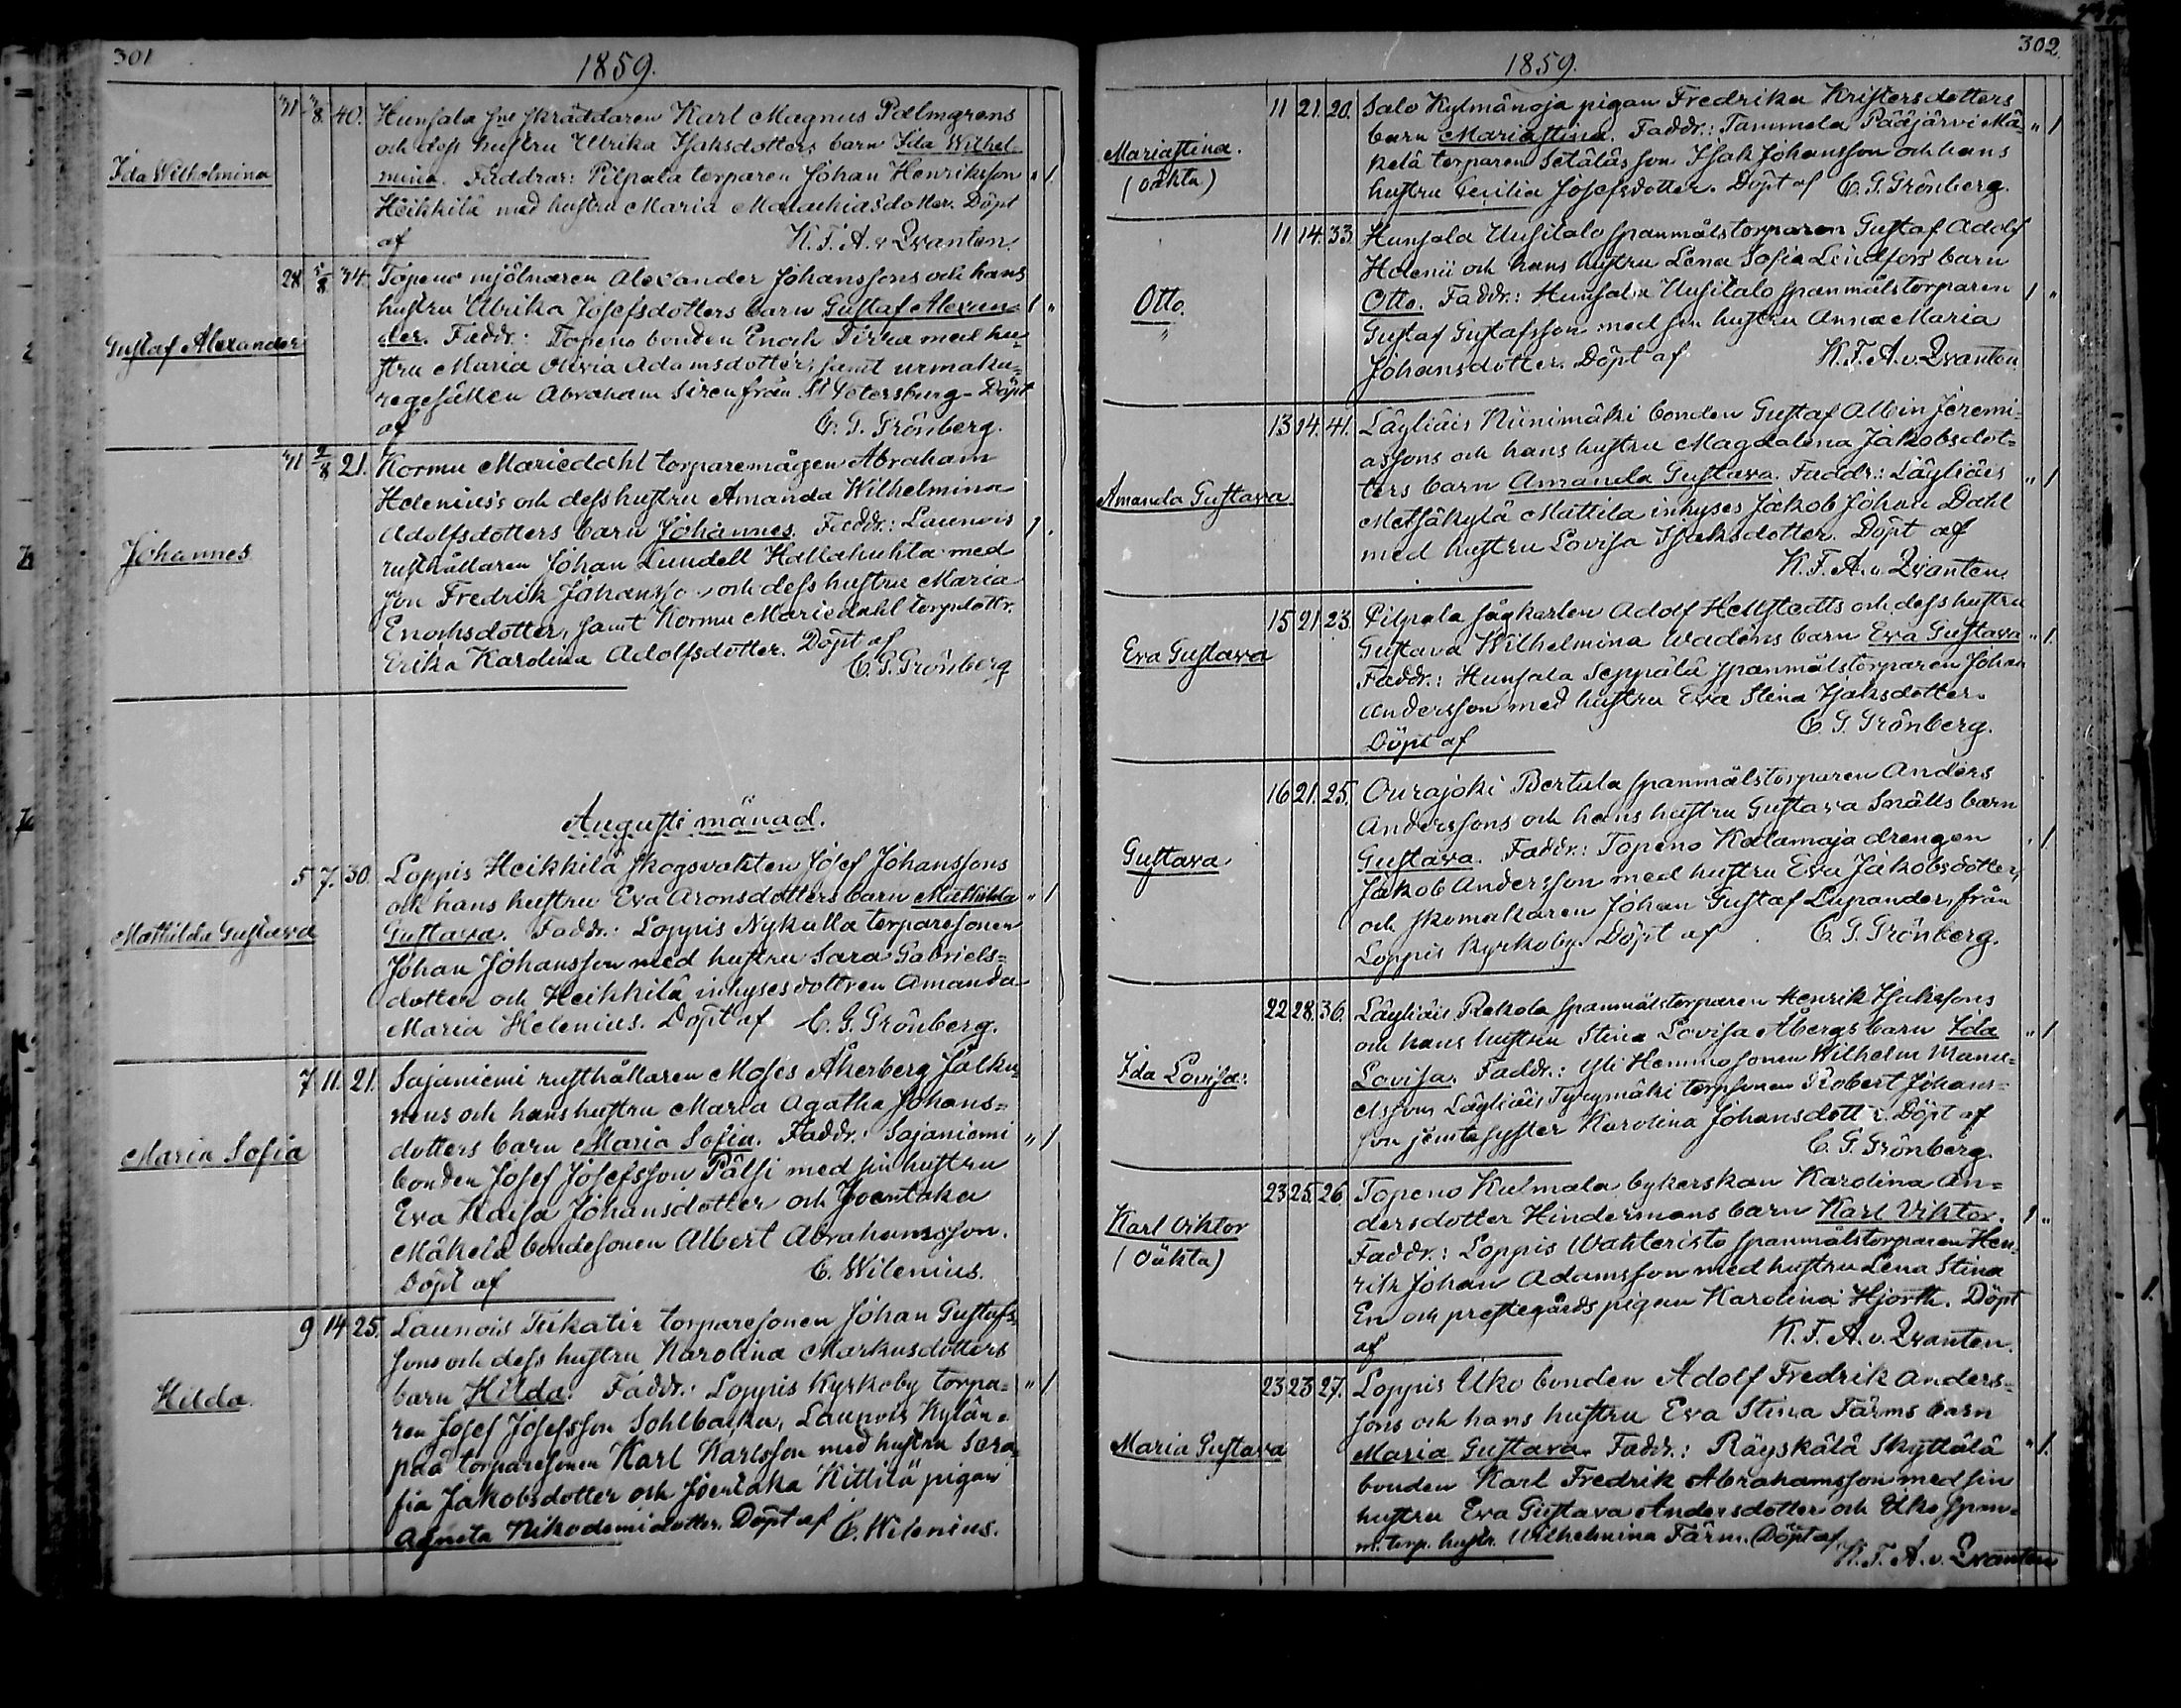 301
1859.
Ida Wilhelmina
31 3/8 40. Hunsala sne skräddaren Karl Magnus Palmgrens
och dess hustru Ulrika Isaksdotters barn Ida Wilhel-
mina. Faddrar: Pilpala torparen Johan Henriksson " 1.
Heikkilä med hustru Maria Malakiasdotter. Döpt
af K. F. A. v Qvanten.
Gustaf Alexander
28 2/8 34. Topeno mjölnaren Alexander Johanssons och hans
hustru Ulrika Josefsdotters barn Gustaf Alexan= 1 "
der. Faddr.: Topeno bonden Enoch Pirka med hu=
stru Maria Olivia Adamsdotter, samt urmaka=
regesällen Abraham Siren från St Petersburg. Döpt
af C. G. Grönberg.
Johannes
31 2/8 21. Kormu Mariedahl torparemågen Abraham
Helenius's och dess hustru Amanda Wilhelmina
Adolfsdotters barn Johannes. Faddr.: Launois 1 "
rusthållaren Johan Lundell Hallakuhta med
son Fredrik Johansso och dess hustru Maria
Enochsdotter, samt Kormu Mariedahl torpdottr.
Erika Karolina Adolfsdotter. Döpt af
C. G. Grönberg
Augusti månad.
Mathilda Gustava
5 7. 30. Loppis Heikkilä skogsvakten Josef Johanssons
och hans hustru Eva Aronsdotters barn Mathilda " 1
Gustava. Faddr.: Loppis Nykulla torparesonen
Johan Johansson med hustru Sara Gabriels=
dotter och Heikkilä inhysesdottren Amanda
Maria Helenius. Döpt af C. G. Grönberg.
Maria Sofia
7 11. 21. Sajaniemi rusthållaren Moses Åkerberg Jalku=
nens och hans hustru Maria Agatha Johans=
dotters barn Maria Sofia. Faddr.: Sajaniemi " 1
bonden Josef Josefsson Pälsi med sin hustru
Eva Kaisa Johansdotter och Joentaka
Mäkelä bondesonen Albert Abrahamsson.
Döpt af C. Wilenius.
Hilda
9 14 25. Launois Tukatie torparesonen Johan Gustafs=
sons och dess hustru Karolina Markusdotters
barn Hilda. Faddr.: Loppis Kyrkoby torpa= " 1.
ren Josef Josefsson Sohlbacka, Launois Kylän=
pää torparesonen Karl Karlsson med hustru Sara
fia Jakobsdotter och Joentaka Kittilä pigan
Agneta Nikodemidotter. Döpt af C. Wilenius.
302.
1859.
Mariastina.
(oäkta)
11 21. 20. Salo Kylmänoja pigan Fredrika Kristersdotters
barn Mariastina. Faddr.: Tammela Pääjärvi Mä= " 1
kelä torparen Setäläs son Isak Johansson och hans
hustru Cecilia Josefsdotter. Döpt af C. G. Grönberg.
Otto.
"
11 14. 33. Hunsala Uusitalo spanmålstorparen Gustaf Adolf
Helenii och hans hustru Lena Sofia Lindfors barn
Otto. Faddr.: Hunsala Uusitalo spanmålstorparen 1 "
Gustaf Gustafsson med sin hustru Anna Maria
Johansdotter. Döpt af K. F. A. v. Qvanten.
Amanda Gustava
13 14. 41. Läyliäis Niinimäki bonden Gustaf Albin Jeremi=
assons och hans hustru Magdalena Jakobsdot=
ters barn Amanda Gustava. Faddr.: Läyliäis " 1
Metsäkylä Mattila inhyses Jakob Johan Dahl
med hustru Lovisa Isaksdotter. Döpt af
K. F. A. v. Qvanten.
Eva Gustava
15 21 23. Pilpala sågkarlen Adolf Hellstedts och dess hustru
Gustava Wilhelmina Wadens barn Eva Gustava " 1.
Faddr.: Hunsala Seppälä spanmålstorparen Johan
Andersson med hustru Eva Stena Isaksdotter.
Döpt af C. G. Grönberg.
Gustava
16 21. 25. Ourajoki Bertula spanmålstorparen Anders
Anderssons och hans hustru Gustava Snälls barn
Gustava. Faddr.: Topeno Kalamaja drengen " 1
Jakob Andersson med hustru Eva Jakobsdotter,
och skomakaren Johan Gustaf Lupander, från
Loppis Kyrkoby. Döpt af C. G. Grönberg.
Ida Lovisa.
22 28. 36. Läyliäis Rekola spanmålstorparen Henrik Isakssons
och hans hustru Stina Lovisa Åbergs barn Ida " 1
Lovisa. Faddr.: Yli Hemmo sonen Wilhelm Manu=
elsson, Läyliäis Tyrymäki torpsonen Robert Johans=
son jemte syster Karolina Johansdott r. Döpt af
C. G. Grönberg.
Karl Viktor
(Oäkta)
23 25. 26. Topeno Kulmala bykerskan Karolina An=
dersdotter Hindermans barn Karl Viktor. 1 "
Faddr.: Loppis Wahteristo spanmålstorparen Hen=
rik Johan Adamsson med hustru Lena Stina
En och prestegårds pigan Karolina Hjorth. Döpt
af K. F. A. v. Qvanten.
Maria Gustava
23 23 27. Loppis Uko bonden Adolf Fredrik Anders=
sons och hans hustru Eva Stina Färms barn
Maria Gustava. Faddr.: Räyskälä Skyttälä " 1.
bonden Karl Fredrik Abrahamsson med sin
hustru Eva Gustava Andersdotter och Uko span=
m. torp. hustr. Wilhelmina Färm. Döpt af
K. F. A. v. Qvanten